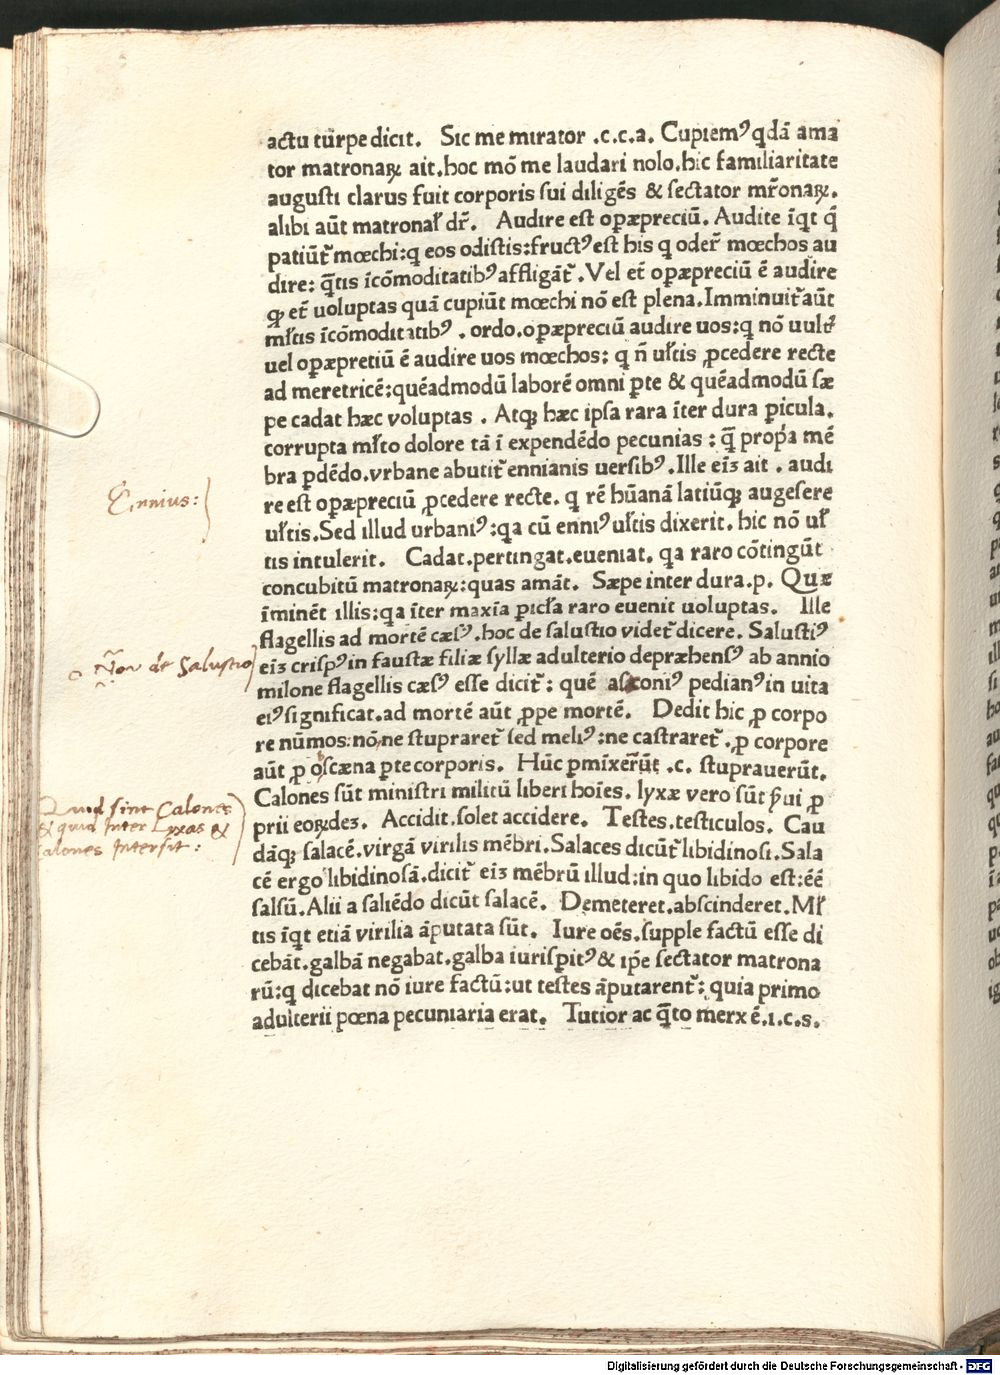 actu turpe dicit. Sic me mirator .c.c.a. Cupiemꝰ qdã ama
tor matronaꝝ ait.hoc mõ me laudari nolo.hic familiaritate
augusti clarus fuit corporis sui diligẽs & sectator mr̃onaꝝ.
alibi aũt matronał dr̃. Audire est opæpreciũ. Audite ĩqt q̃
patiũt᷑ mœchi:q eos odistis:fructꝰ est his q oder̃ mœchos au
dire: q̃tis ĩcõmoditatibꝰ affligãt᷑. Vel et᷑ opæpreciũ ẽ audire
ꝙ et᷑ uoluptas quã cupiũt mœchi nõ est plena.Imminuit᷑ aũt
mĺtis ĩcõmoditatibꝰ . ordo.opæpreciũ audire uos:q nõ uult᷑
uel opæpretiũ ẽ audire uos mœchos: q ñ uĺtis ꝓcedere recte
ad meretricẽ:quẽadmodũ laborẽ omni ꝑte & quẽadmodũ sæ
pe cadat hæc voluptas . Atqꝫ hæc ipsa rara ĩter dura ꝑicula.
corrupta mĺto dolore tã ĩ expendẽdo pecunias : q̃ propᷓa mẽ
bra ꝑdẽdo.vrbane abutit᷑ ennianis uersibꝰ.Ille eiꝫ ait . audi
re est opæpreciũ ꝓcedere recte. q rẽ hũanã latiũqꝫ augesere
uĺtis.Sed illud urbaniꝰ:qa cũ enniꝰ uĺtis dixerit. hic nõ uĺ
tis intulerit. Cadat.pertingat.eueniat. qa raro cõtingũt
concubitũ matronaꝝ:quas amãt. Sæpe inter dura.p. Quæ
ĩminẽt illis:qa ĩter maxĩa ꝑicĺa raro euenit uoluptas. Ille
flagellis ad mortẽ cæsꝰ.hoc de salustio videt᷑ dicere. Salustiꝰ
eiꝫ crispꝰ in faustæ filiæ syllæ adulterio depræhensꝰ ab annio
milone flagellis cæsꝰ esse dicit᷑: quẽ asconiꝰ pedianꝰ in uita
eiꝰ significat.ad mortẽ aũt ꝓpe mortẽ. Dedit hic ꝓ corpo
re nũmos:nõ ne stupraret᷑ sed meliꝰ:ne castraret᷑. ꝓ corpore
aũt ꝓ oscæna ꝑte corporis. Hũc ꝑmixer̃ũt .c. stuprauerũt.
Calones sũt ministri militũ liberi hoĩes. lyxæ vero sũt ẜui ꝓ
prii eoꝝdeꝫ. Accidit.solet accidere. Testes.testiculos. Cau
dãqꝫ salacẽ.virgã virilis mẽbri.Salaces dicũt᷑ libidinosi.Sala
cẽ ergo libidinosã.dicit᷑ eiꝫ mẽbrũ illud:in quo libido est:ẽẽ
salsũ.Alii a saliẽdo dicũt salacẽ. Demeteret.abscinderet.Mĺ
tis ĩqt etiã virilia ãputata sũt. Iure oẽs.supple factũ esse di
cebãt.galbã negabat.galba iurispitꝰ & ip̃e sectator matrona
rũ:q dicebat nõ iure factũ:ut testes ãputarent᷑: quia primo
adulterii pœna pecuniaria erat. Tutior ac q̃to merx ẽ.i.c.s.
Ennius:
Non de Salustio
Quid sint Calones
& quid Inter Lyxas &
Calones Intersit:
Digitalisierung gefördert durch die Deutsche Forschungsgemeinschaft - DFG